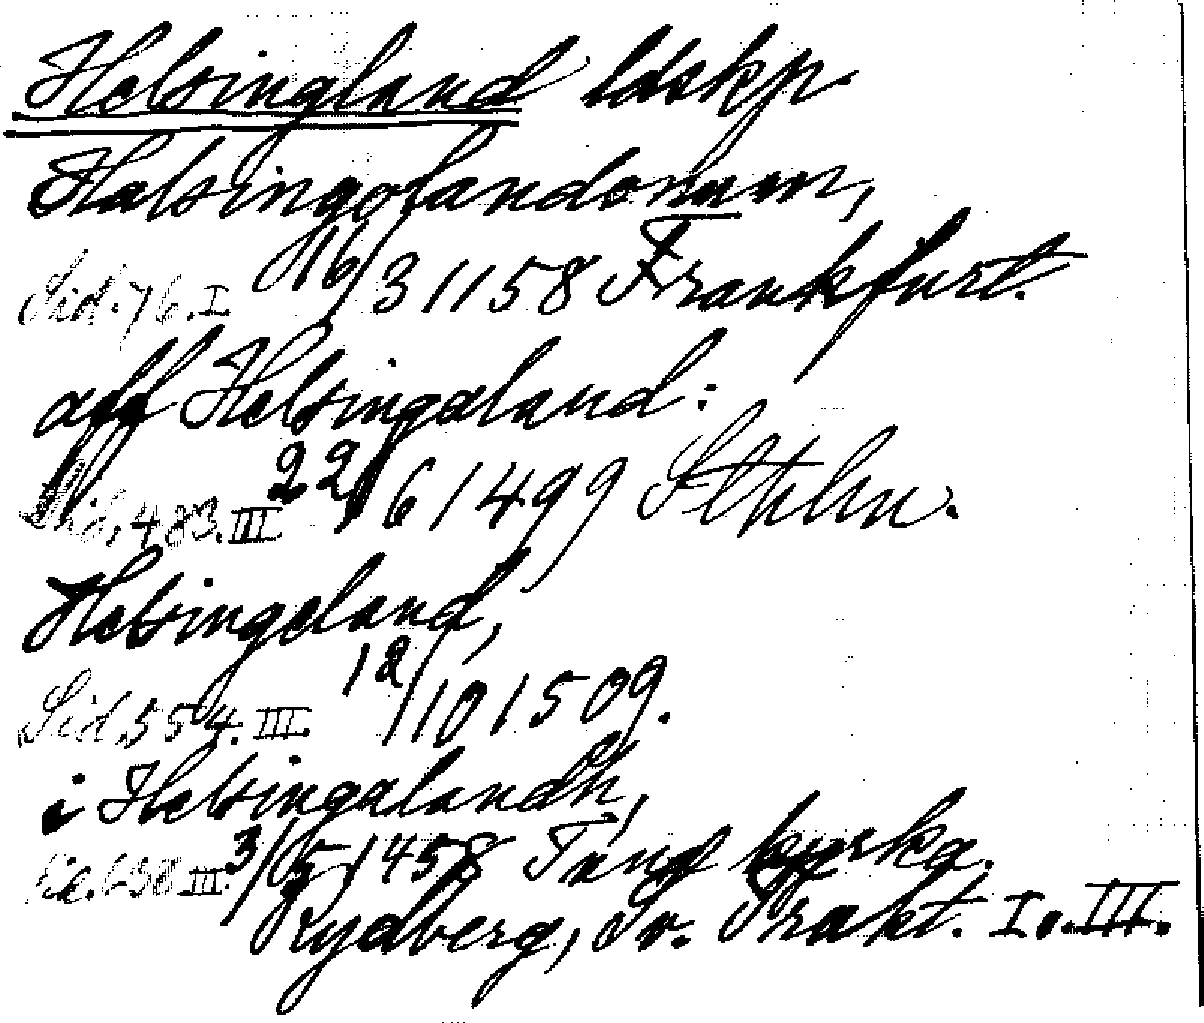 Helsingland ldskp.
Halsingolandonum,
Sid. 76. I 16/3 1158 Frankfurt.
aff Helsingaland:
Sid. 483. III 22/6 1499 Sthlm.
Helsingeland,
Sid. 554. III. 12/10 1509.
i Helsingalandh,
658 III. 3/5 1458 Tuna kyrka.
Rydberg, Sv. Trakt. I o. III.